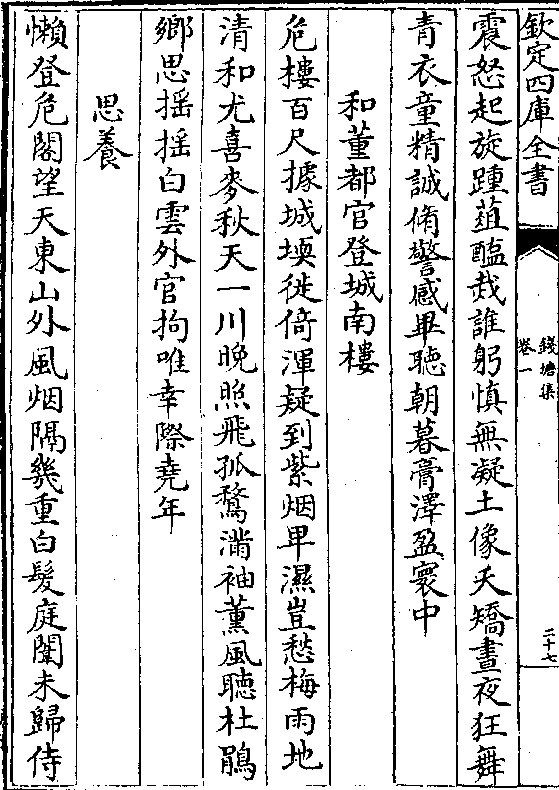 欽定四庫全書
錢塘集
卷一
二十七
震怒起旋踵葅醢哉誰躬慎無凝土像夭矯晝夜狂舞
青衣童精誠脩警感畢聽朝暮膏澤盈寰中
和董都官登城南樓
危樓百尺據城堧徙倚渾疑到紫烟卑濕豈愁梅雨地
清和尤喜麥秋天一川晚照飛孤鶩滿袖薰風聽杜鵑
鄉思揺揺白雲外官拘唯幸際堯年
思養
懶登危閣望天東山外風烟隔幾重白髮庭闈未歸侍